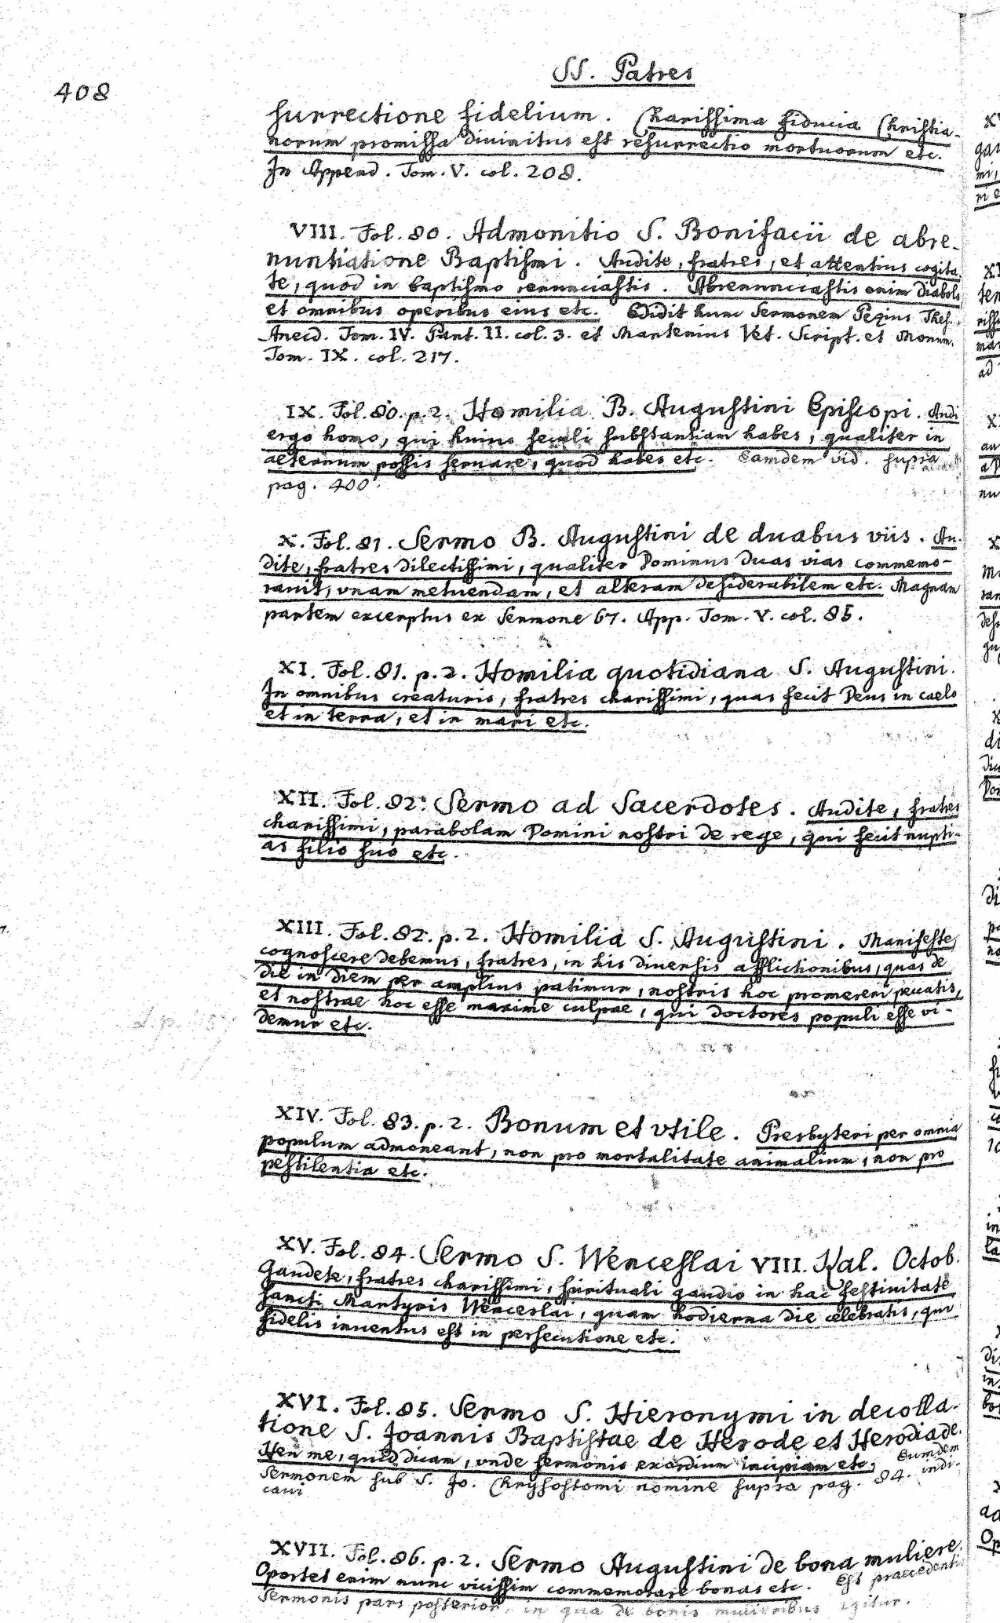 408
SS. Patres
surrectione fidelium. Charissima fiducia Christia-
norum promissa divinitus est resurrectio mortuorum etc.
In Append. Tom. V. col. 208.
VIII. Fol. 80. Admonitio S. Bonifacii de abre-
nuntiatione Baptismi. Audite, fratres, et attentius cogita-
te, quod in baptismo renunciastis. Abrenunciastis enim Diabolo
et omnibus operibus eius etc. Edidit hunc Sermonem Pezius Thes.
Anecd. Tom. IV. Part. II. col. 3. et Martenius Vet. Script. et Monum.
Tom. IX. col. 217.
IX. Fol. 80. p. 2. Homilia B. Augustini Episcopi. Audi
ergo homo, qui huius seculi substantiam habes, qualiter in
aeternum possis servare, quod habes etc. Eamdem vid. supra
pag. 400.
X. Fol. 81. Sermo B. Augustini de duabus viis. Au-
dite, fratres dilectissimi, qualiter Dominus duas vias commemo-
ravit, unam metuendam, et alteram desiderabilem etc. Magnam
partem excerptus ex Sermone 67. App. Tom. V. col. 85.
XI. Fol. 81. p. 2. Homilia quotidiana S. Augustini.
In omnibus creaturis, fratres charissimi, quas fecit Deus in caelo
et in terra, et in mari etc.
XII. Fol. 82. Sermo ad Sacerdotes. Audite, fratres
charissimi, parabolam Domini nostri de rege, qui fecit nupti-
as filio suo etc.
XIII. Fol. 82. p. 2. Homilia S. Augustini. Manifeste
cognoscere debemus, fratres, in his diversis afflictionibus, quas de
die in diem per amplius patimur, nostris hoc promereri peccatis,
et nostrae hoc esse maxime culpae, qui doctores populi esse vi-
demur etc.
XIV. Fol. 83. p. 2. Bonum et utile. Presbyteri per omnia
populum admoneant, non pro mortalitate animalium, non pro
pestilentia etc.
XV. Fol. 84. Sermo S. Wenceslai VIII. Kal. Octob.
Gaudete, fratres charissimi, spirituali gaudio in hac festivitate
sancti Martyris Wenceslai, quam hodierna die celebratis, qui
fidelis inventus est in persecutione etc.
XVI. Fol. 85. Sermo S. Hieronymi in decolla-
tione S. Joannis Baptistae de Herode et Herodiade.
Heu me, quid dicam, unde sermonis exordium incipiam etc. Eumdem
Sermonem sub S. Jo. Chrysostomi nomine supra pag. 84. indi-
cavi
XVII. Fol. 86. p. 2. Sermo Augustini de bona muliere.
Oportet enim nunc vicissim commemorare bonas etc. Est praecedentis
Sermonis pars posterior, in qua de bonis mulieribus agitur.